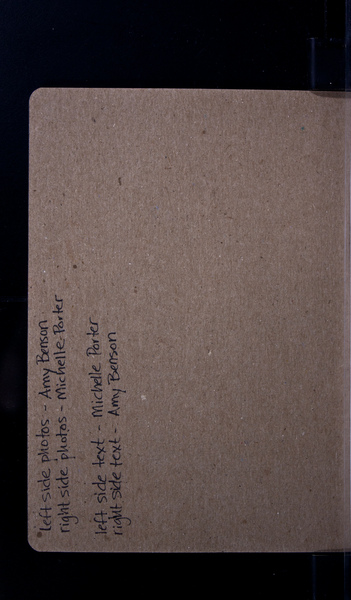 left side photos - Amy Benson
right side photos - Michelle Porter
left side text - Michelle Porter
right side text - Amy Benson